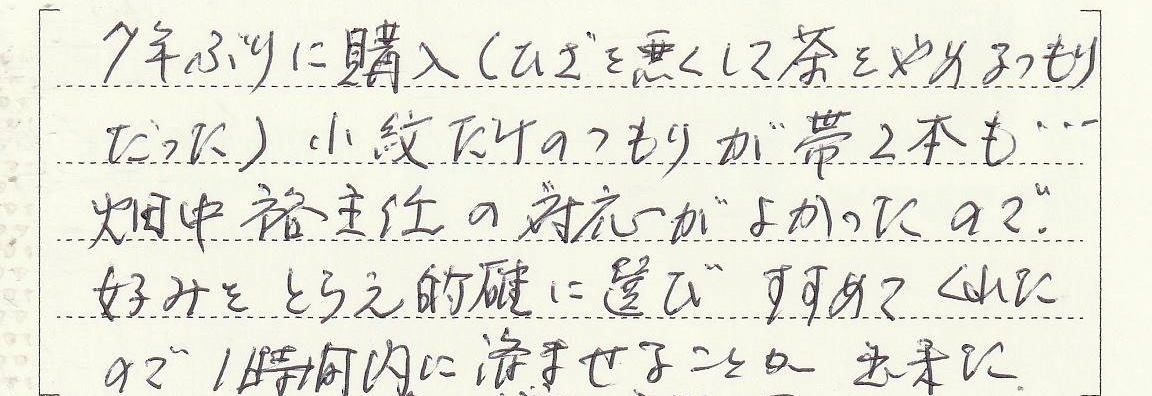 7年ぶりに購入(ひざを悪くして茶をやめるつもり
だった)小紋だけのつもりが帯2本も…
畑中裕主任の対応がよかったので.
好みをとらえ的確に選びすすめてくれた
ので1時間内に済ませることが出来た